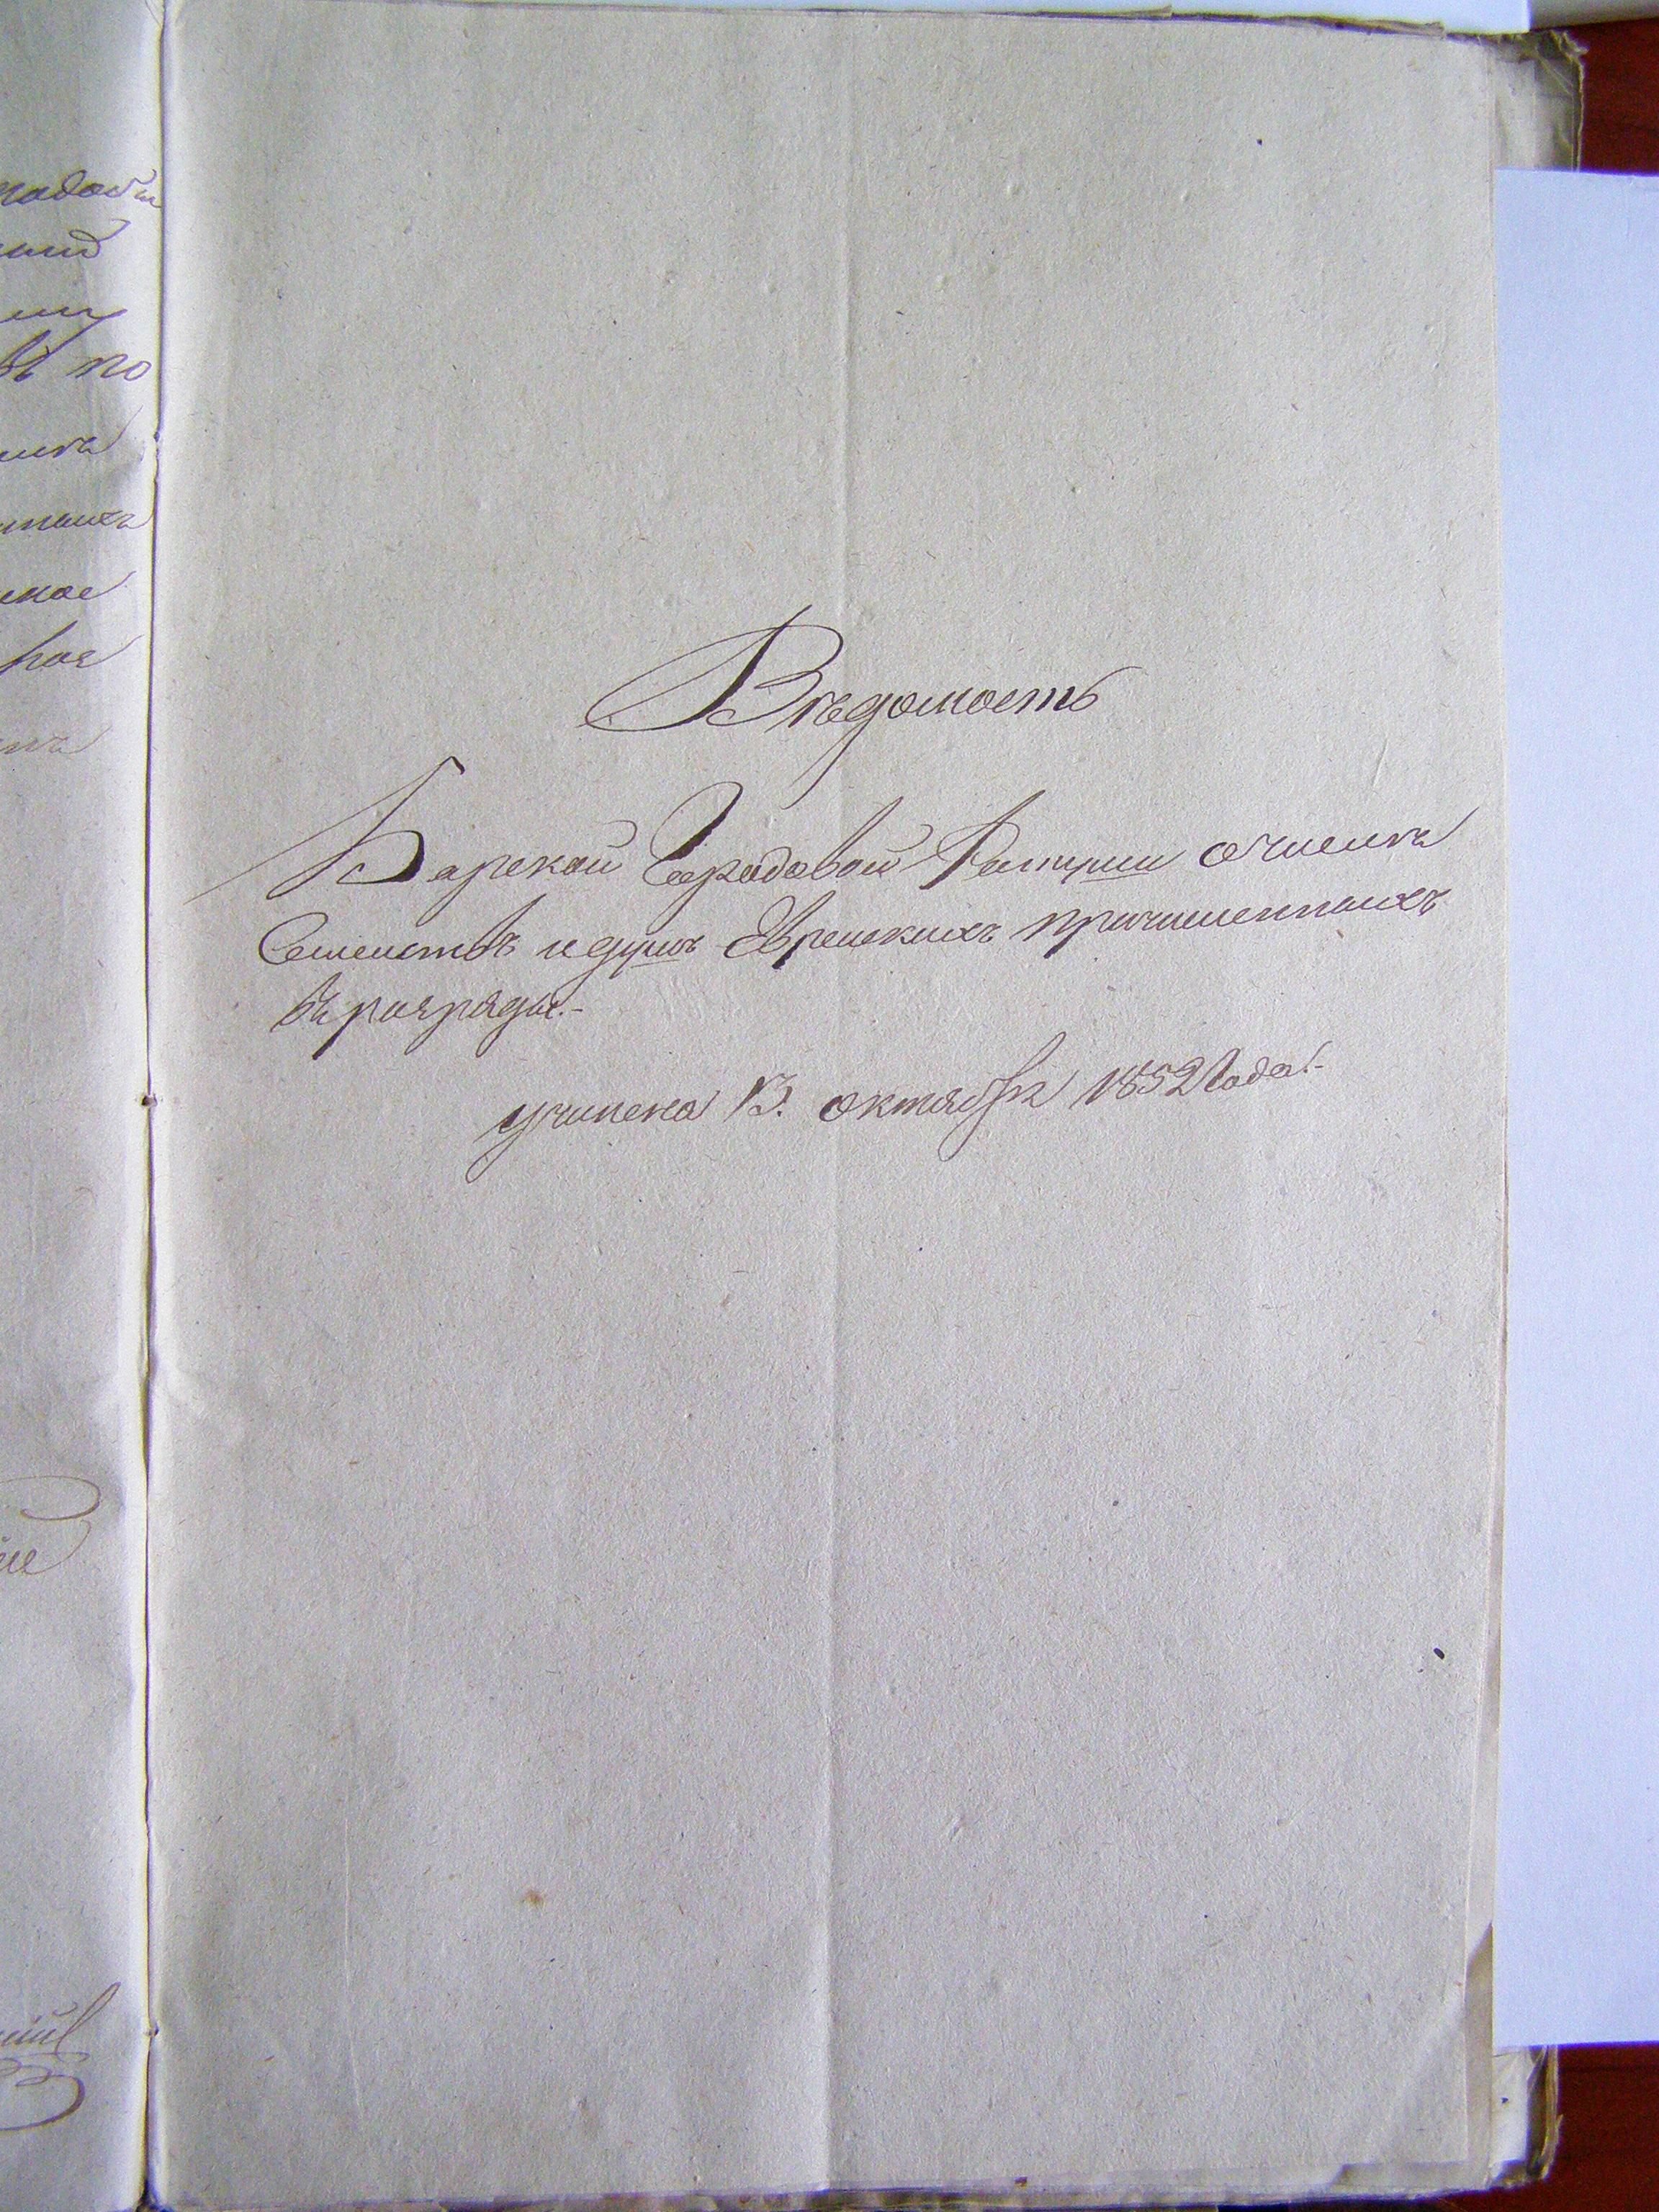 Вѣдомость
Барской Городовой Ратуши о числѣ
Семействъ и душъ Еврейскихъ причисленныхъ
въ разряды.-
учинена 13. октября 1852 Года.-